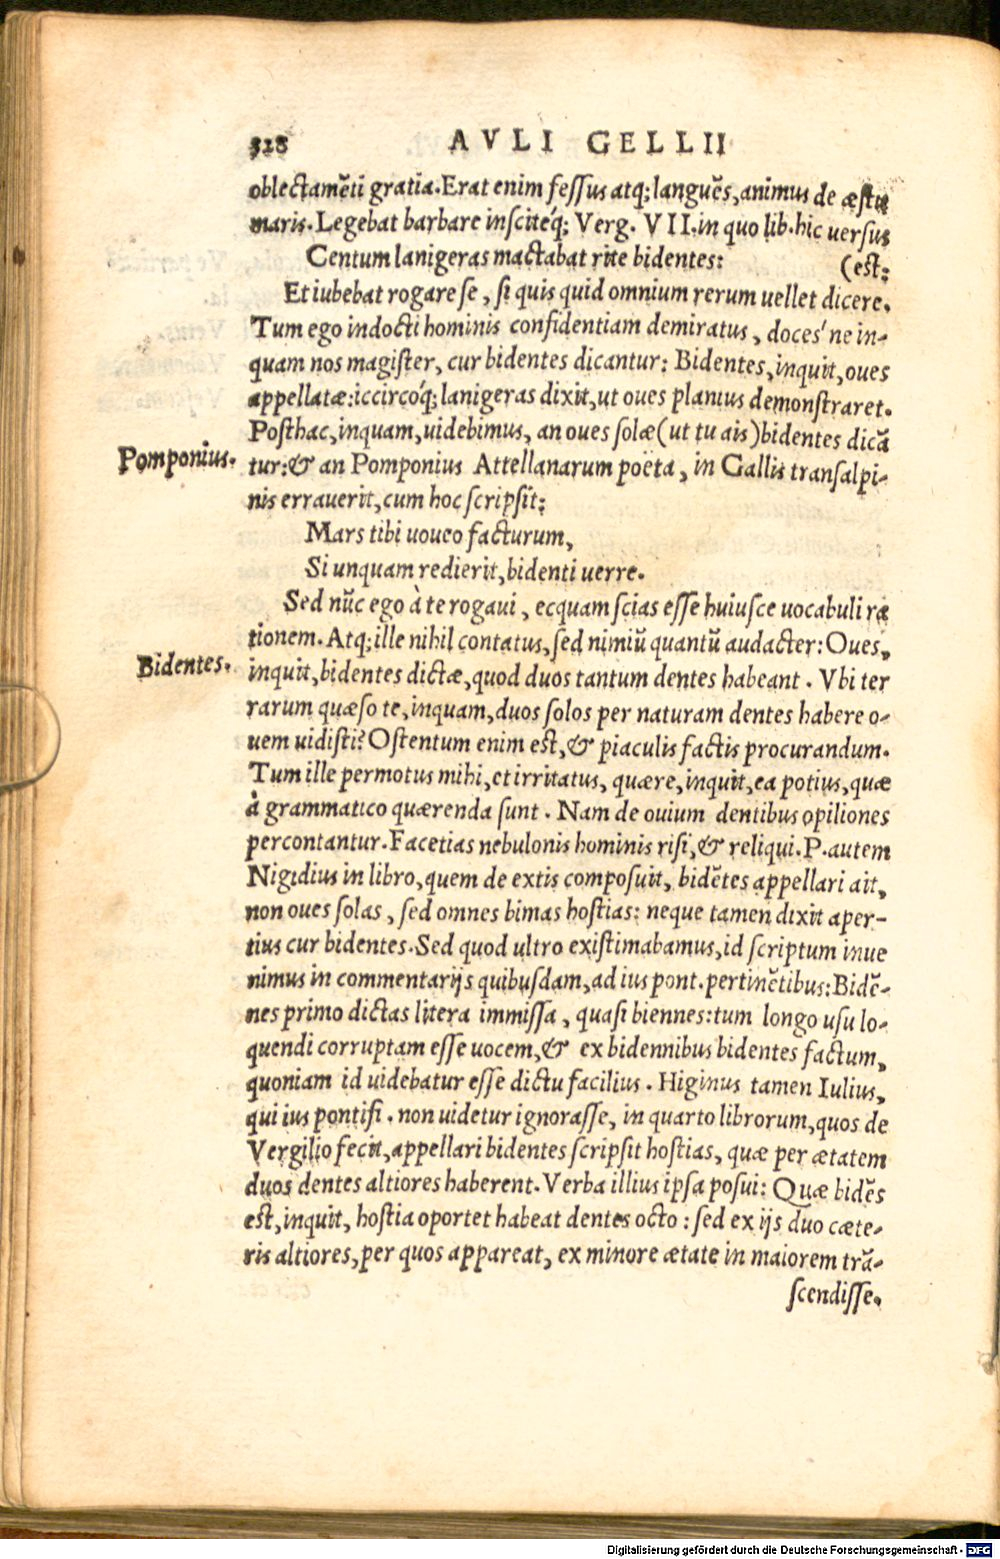 328 AVLI GELLII
oblectamẽti gratia. Erat enim fessus atq; languẽs, animus de æstu
maris. Legebat barbare insciteq́; Verg. VII. in quo lib. hic uersus
Centum lanigeras mactabat rite bidentes: (est:
Et iubebat rogare se, si quis quid omnium rerum uellet dicere.
Tum ego indocti hominis confidentiam demiratus, doces' ne in-
quam nos magister, cur bidentes dicantur: Bidentes, inquit, oues
appellatæ: iccircoq́; lanigeras dixit, ut oues planius demonstraret.
Posthac, inquam, uidebimus, an oues solæ (ut tu ais) bidentes dicã
Pomponius. tur: & an Pomponius Attellanarum poëta, in Gallis transalpi-
nis errauerit, cum hoc scripsit:
Mars tibi uoueo facturum,
Si unquam redierit, bidenti uerre.
Sed nũc ego à te rogaui, ecquam scias esse huiusce uocabuli ra
tionem. Atq; ille nihil contatus, sed nimiũ quantũ audacter: Oues,
Bidentes. inquit, bidentes dictæ, quod duos tantum dentes habeant. Vbi ter
rarum quæso te, inquam, duos solos per naturam dentes habere o-
uem uidisti? Ostentum enim est, & piaculis factis procurandum.
Tum ille permotus mihi, et irritatus, quære, inquit, ea potius, quæ
à grammatico quærenda sunt. Nam de ouium dentibus opiliones
percontantur. Facetias nebulonis hominis risi, & reliqui. P. autem
Nigidius in libro, quem de extis composuit, bidẽtes appellari ait,
non oues solas, sed omnes bimas hostias: neque tamen dixit aper-
tius cur bidentes. Sed quod ultro existimabamus, id scriptum inue
nimus in commentarijs quibusdam, ad ius pont. pertinẽtibus: Bidẽ-
nes primo dictas litera immissa, quasi biennes: tum longo usu lo-
quendi corruptam esse uocem, & ex bidennibus bidentes factum,
quoniam id uidebatur esse dictu facilius. Higinus tamen Iulius,
qui ius pontifi. non uidetur ignorasse, in quarto librorum, quos de
Vergilio fecit, appellari bidentes scripsit hostias, quæ per ætatem
duos dentes altiores haberent. Verba illius ipsa posui: Quæ bidẽs
est, inquit, hostia oportet habeat dentes octo: sed ex ijs duo cæte-
ris altiores, per quos appareat, ex minore ætate in maiorem trã-
scendisse.
Digitalisierung gefördert durch die Deutsche Forschungsgemeinschaft - DFG